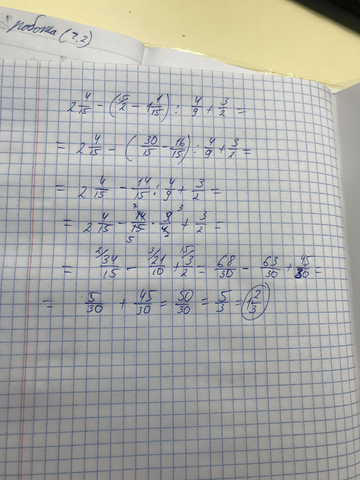 робота (ч.2)
2 4/15 - (15/2 - 1 1/15) : 4/9 + 3/2 =
= 2 4/15 - (30/15 - 16/15) : 4/9 + 3/2 =
= 2 4/15 - 14/15 : 4/9 + 3/2 =
= 2 4/15 - 14/15 · 9/4 + 3/2 =
= 34/15 - 21/10 + 3/2 = 68/30 - 63/30 + 45/30 =
= 5/30 + 45/30 = 50/30 = 5/3 = 1 2/3